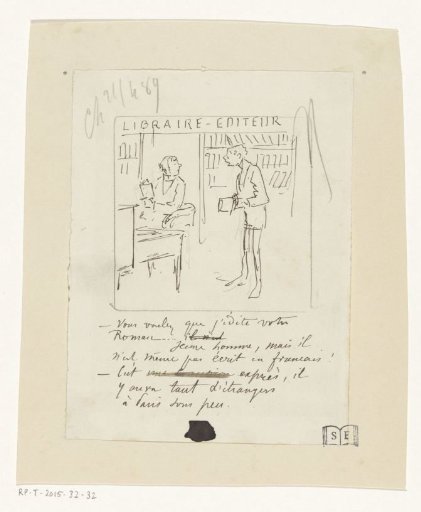 Ch 24/4 89
LIBRAIRE-EDITEUR
— Vous voulez que j'édite votre
Roman... jeune homme, mais il
n'est même pas écrit en français!
— C'est exprès, il
y aura tant d'étrangers
à Paris sous peu.
S E
RP-T-2015-32-32